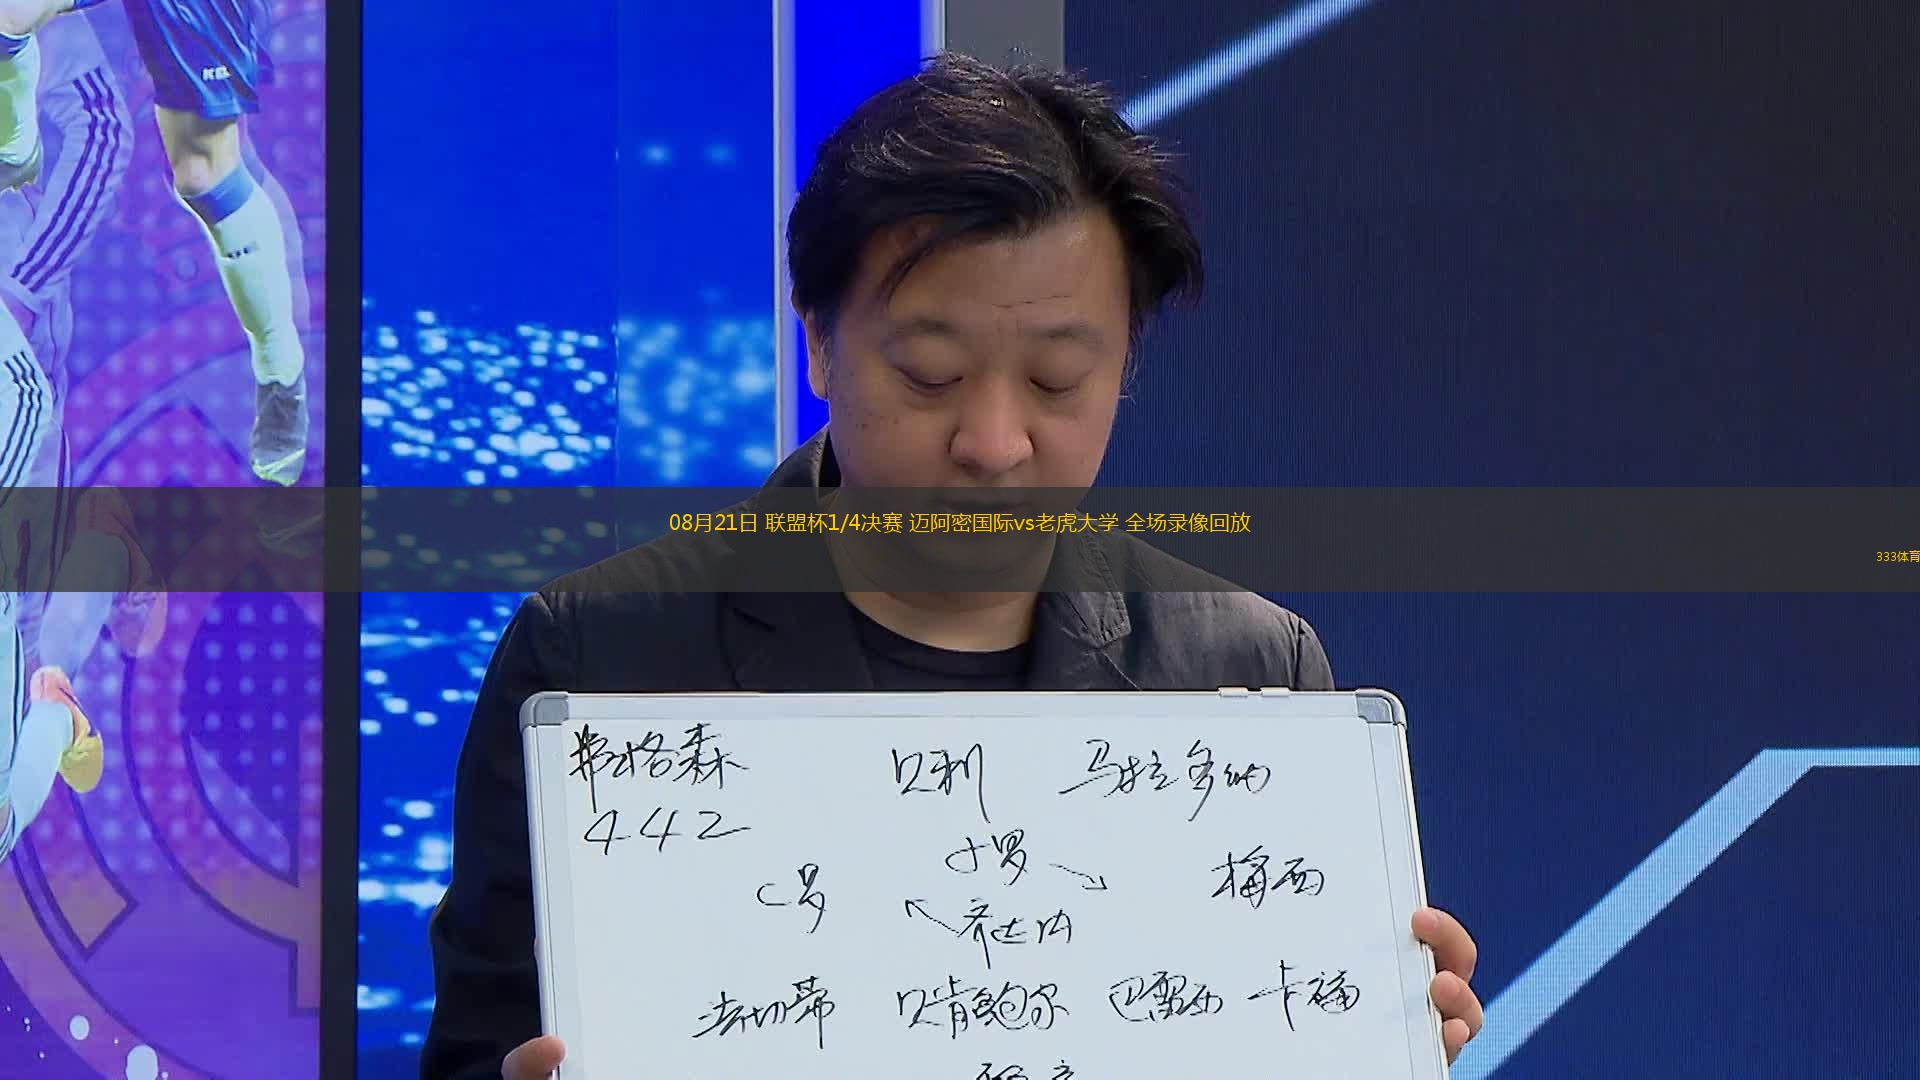 08月21日 联盟杯1/4决赛 迈阿密国际vs老虎大学 全场录像回放
333体育
弗格森 贝利 马拉多纳
442
小罗
C罗 梅西
齐达内
法切蒂 贝肯鲍尔 巴雷西 卡福